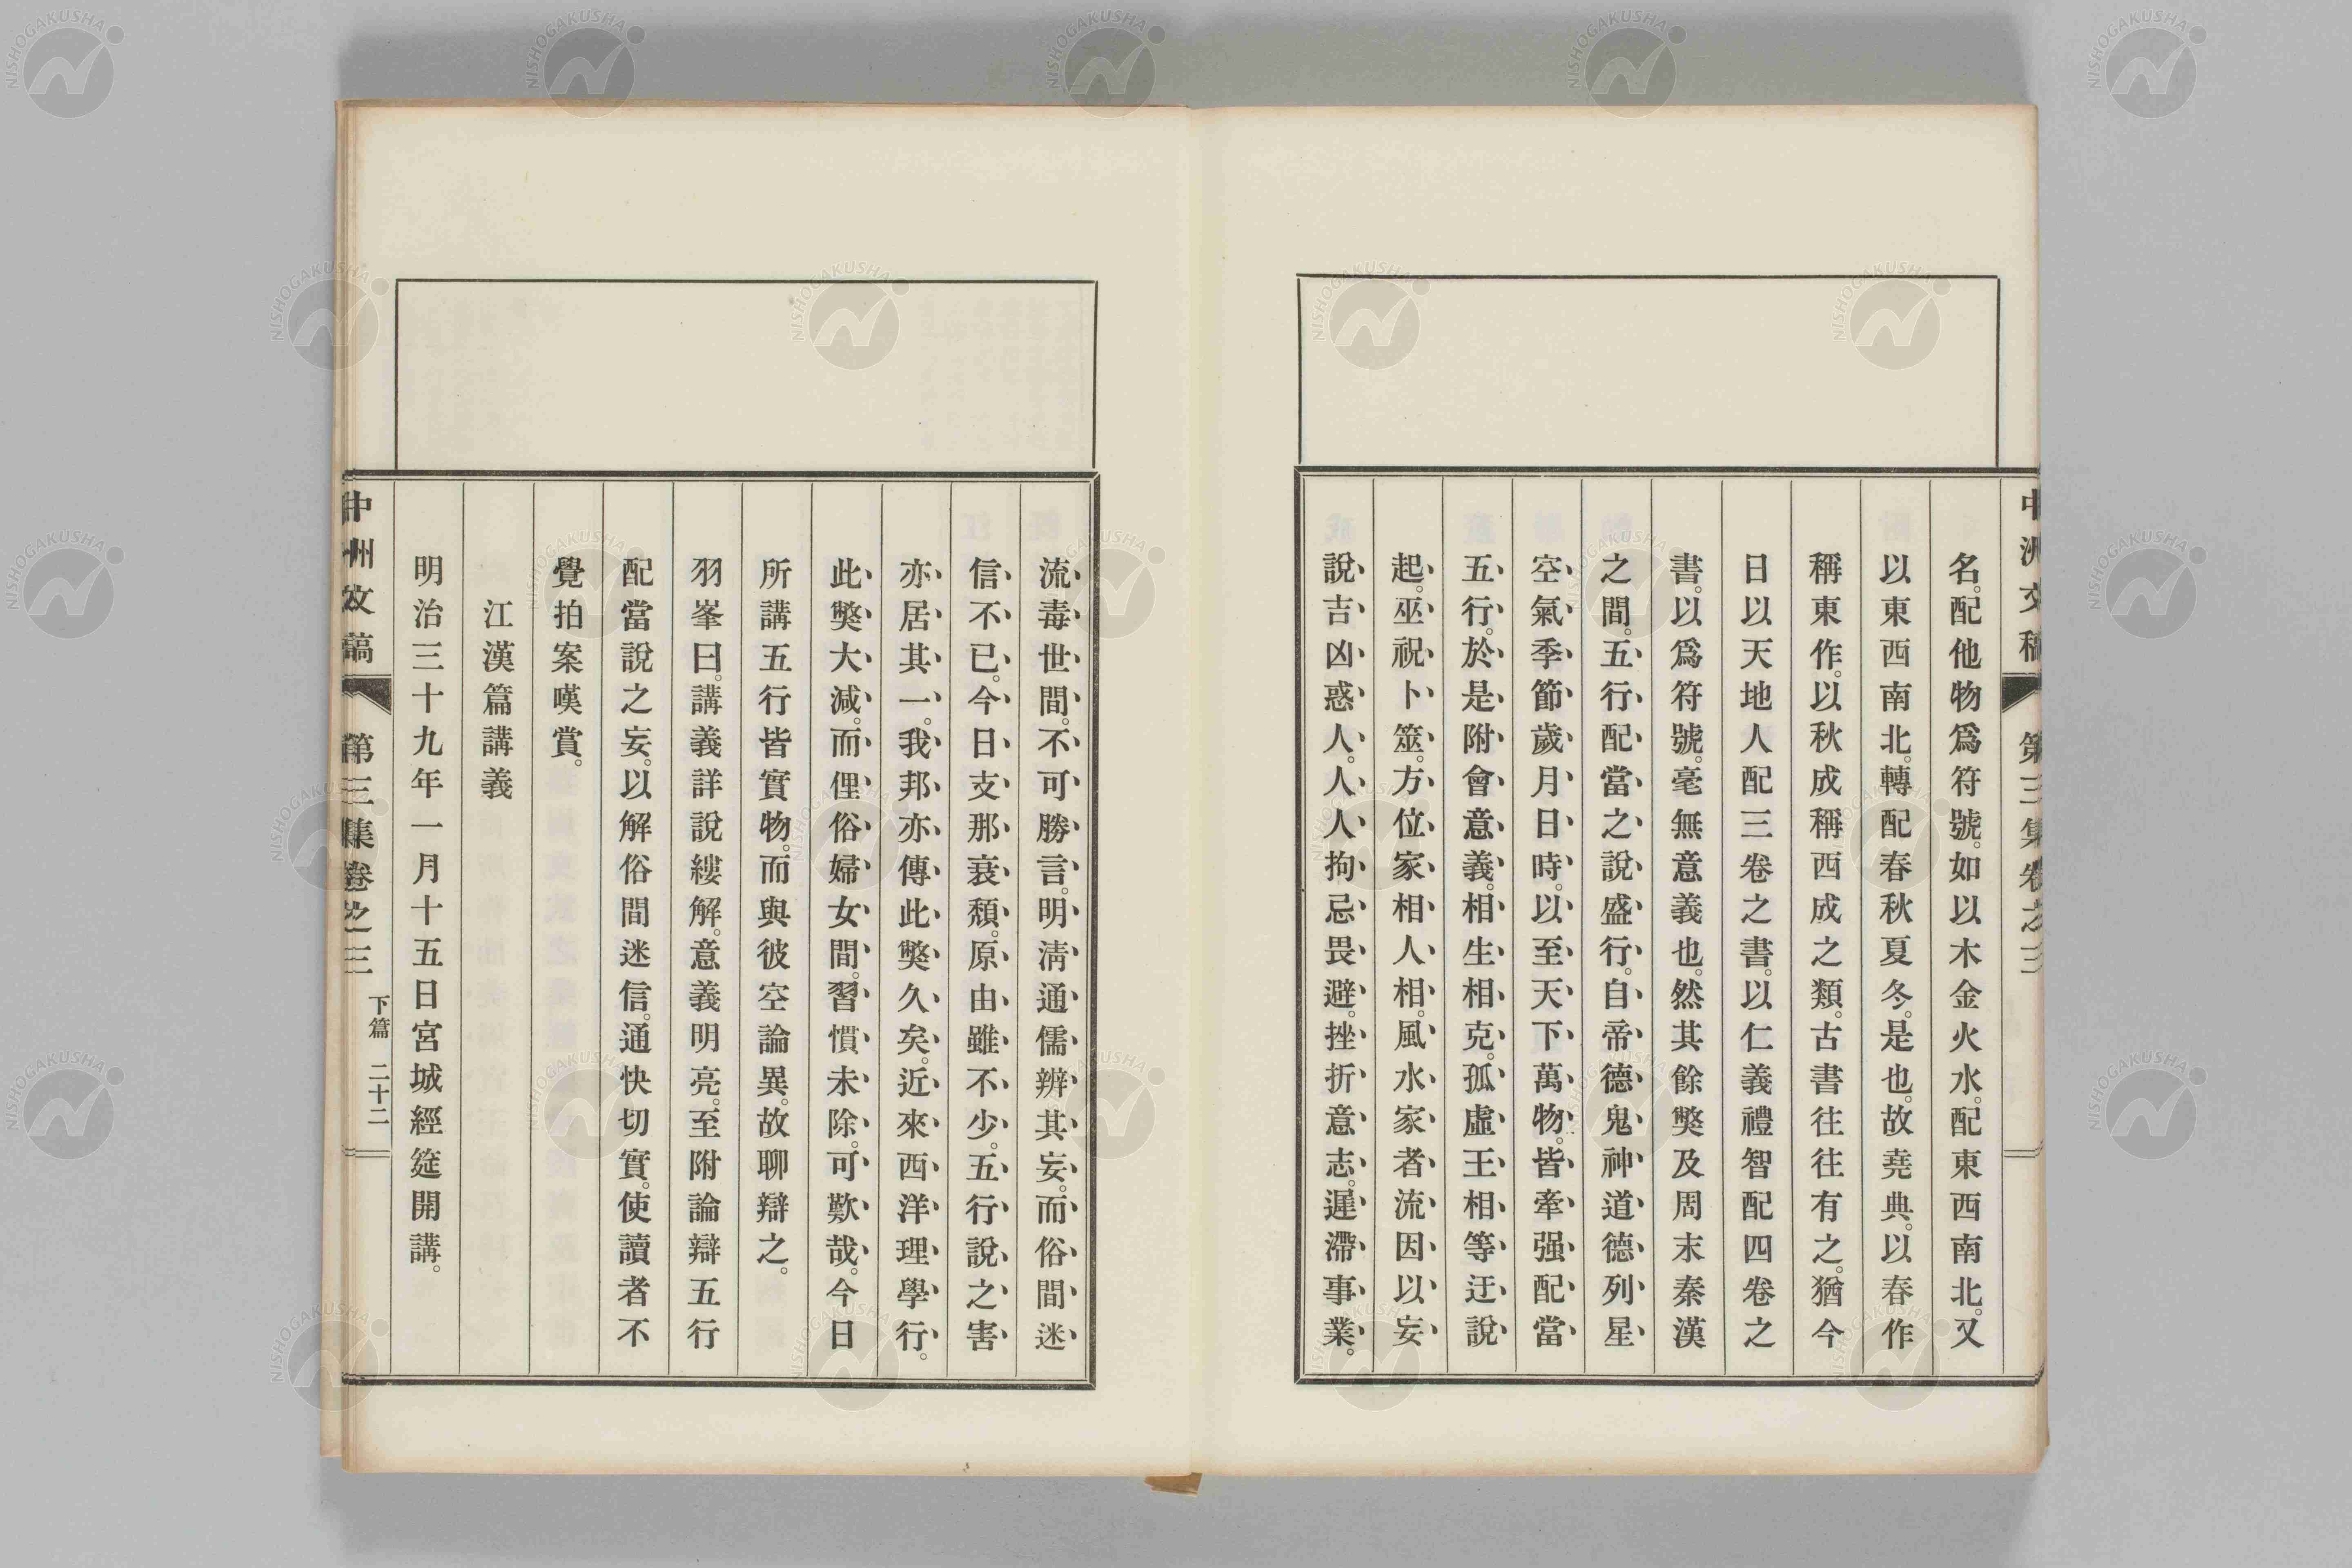 中洲文稿 第三集卷之三
名。配他物爲符號。如以木金火水。配東西南北。又
以東西南北。轉配春秋夏冬。是也。故堯典。以春作
稱東作。以秋成稱西成之類。古書往往有之。猶今
日以天地人配三卷之書。以仁義禮智配四卷之
書。以爲符號。毫無意義也。然其餘獘及周末秦漢
之間。五行配當之說盛行。自帝德鬼神道德列星
空氣季節歲月日時。以至天下萬物。皆牽强配當
五行。於是附會意義。相生相克。孤虛王相等迂說
起。巫祝卜筮。方位家相人相。風水家者流因以妄
說吉凶惑人。人人拘忌畏避。挫折意志。遲滯事業。
流毒世間。不可勝言。明淸通儒辨其妄。而俗間迷
信不已。今日支那衰頹。原由雖不少。五行說之害
亦居其一。我邦亦傳此獘久矣。近來西洋理學行。
此獘大減。而俚俗婦女間。習慣未除。可歎哉。今日
所講五行皆實物。而與彼空論異。故聊辯之。
羽峯曰。講義詳說縷解。意義明亮。至附論辯五行
配當說之妄。以解俗間迷信。通快切實。使讀者不
覺拍案嘆賞。
江漢篇講義
明治三十九年一月十五日宮城經筵開講。
中洲文稿 第三集卷之三 下篇 二十二
NISHOGAKUSHA